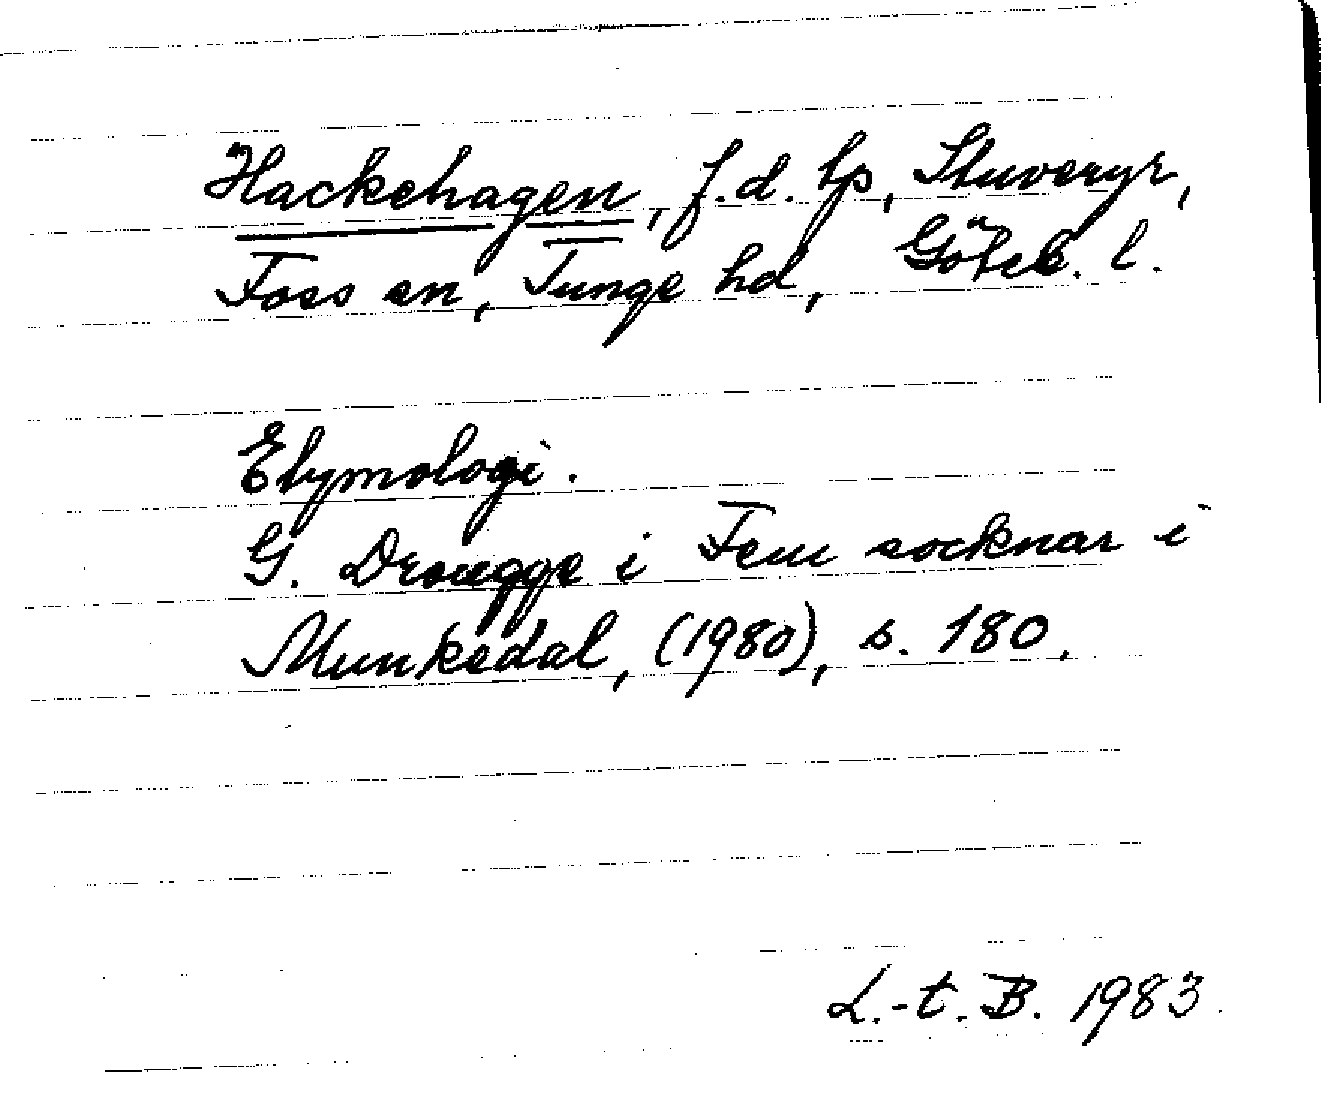 Hackehagen, f.d. lp, Stuveryr,
Foss sn, Tunge hd, Göteb. l.
Etymologi.
G. Drougge i Fem socknar i
Munkedal, (1980), s. 180.
L.-t. B. 1983.